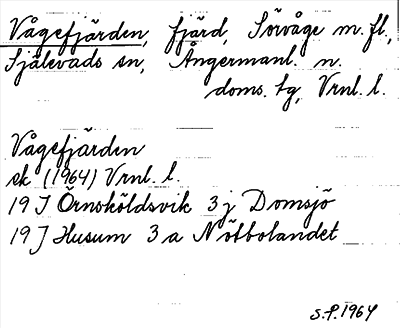 Vågefjärden, fjärd, Sörvåge m. fl.,
Själevads sn, Ångermanl. n.
doms. tg, Vrnl. l.
Vågefjärden
ek (1964) Vrnl. l.
19 J Örnsköldsvik 3 j Domsjö
19 J Husum 3 a Nötbolandet
S.P. 1964